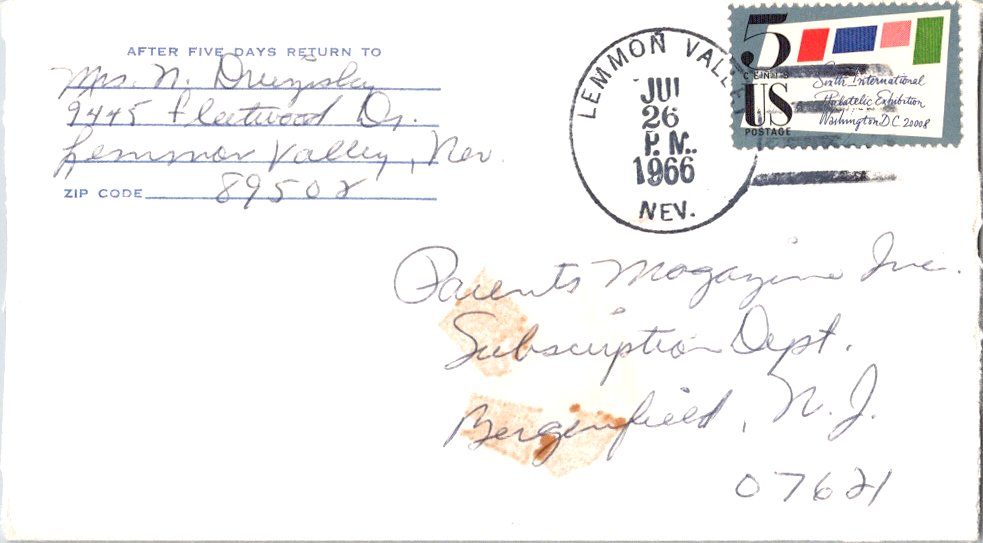 AFTER FIVE DAYS RETURN TO
Mrs. N.
9445 Fleetwood Dr.
Lemmon Valley, Nev.
ZIP CODE 89502
LEMMON VALLEY
JUL
26
P.M.
1966
NEV.
5
CENTS
US
POSTAGE
Sixth International
Philatelic Exhibition
Washington D.C. 20008
Parents Magazine Inc.
Subscription Dept.
Bergenfield, N.J.
07621